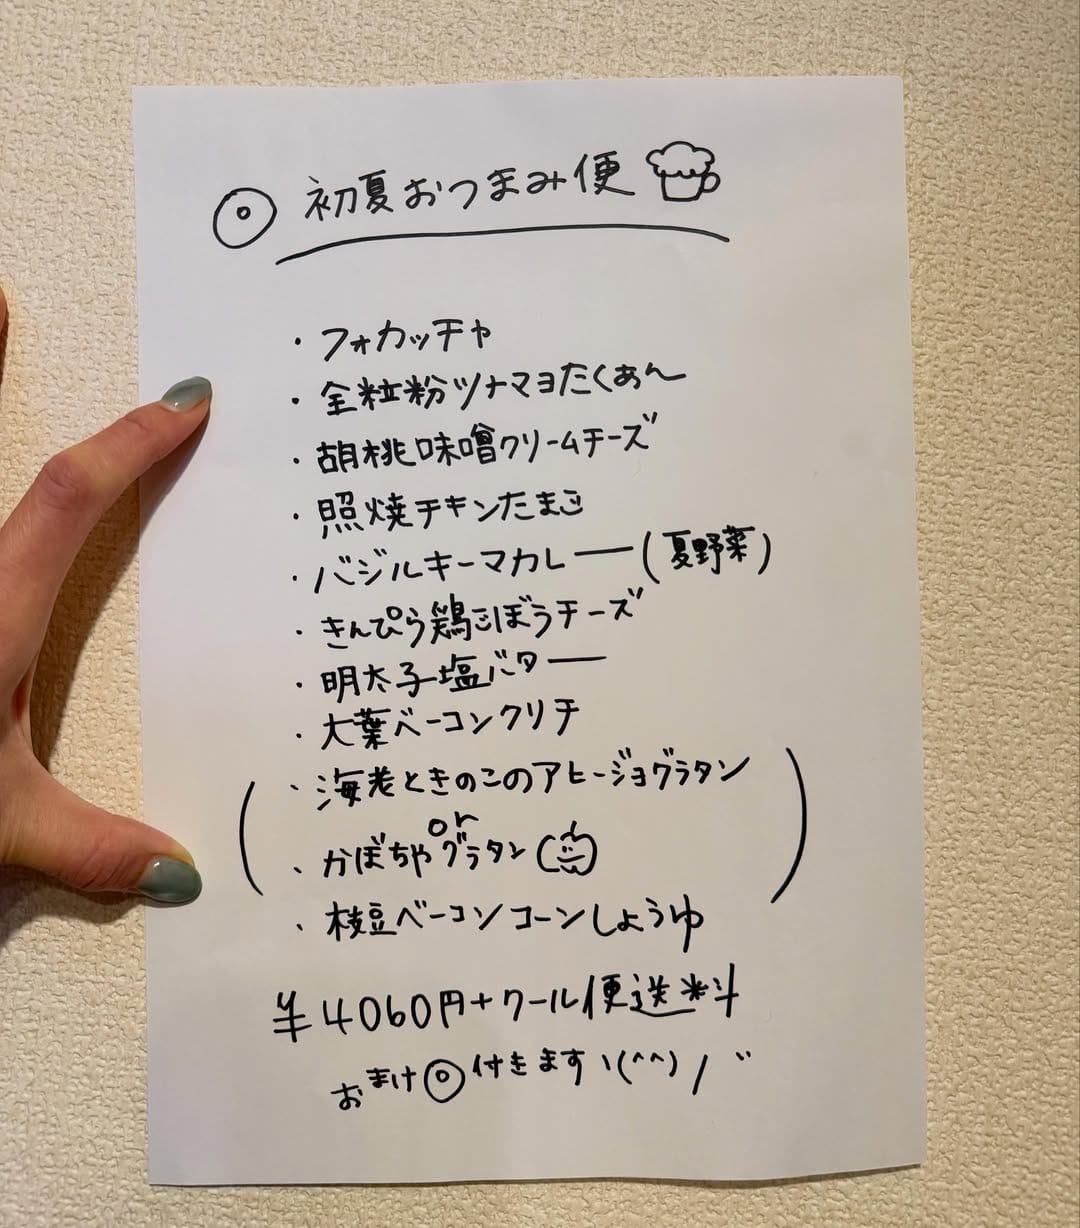 ◎ 初夏おつまみ便
・フォカッチャ
・全粒粉ツナマヨたくあん
・胡桃味噌クリームチーズ
・照焼チキンたまご
・バジルキーマカレー(夏野菜)
・きんぴら鶏ごぼうチーズ
・明太子塩バター
・大葉ベーコンクリチ
(・海老ときのこのアヒージョグラタン
or
・かぼちゃグラタン)
・枝豆ベーコンコーンしょうゆ
¥4060円+クール便送料
おまけ◎付きますヽ(^^)ノ"